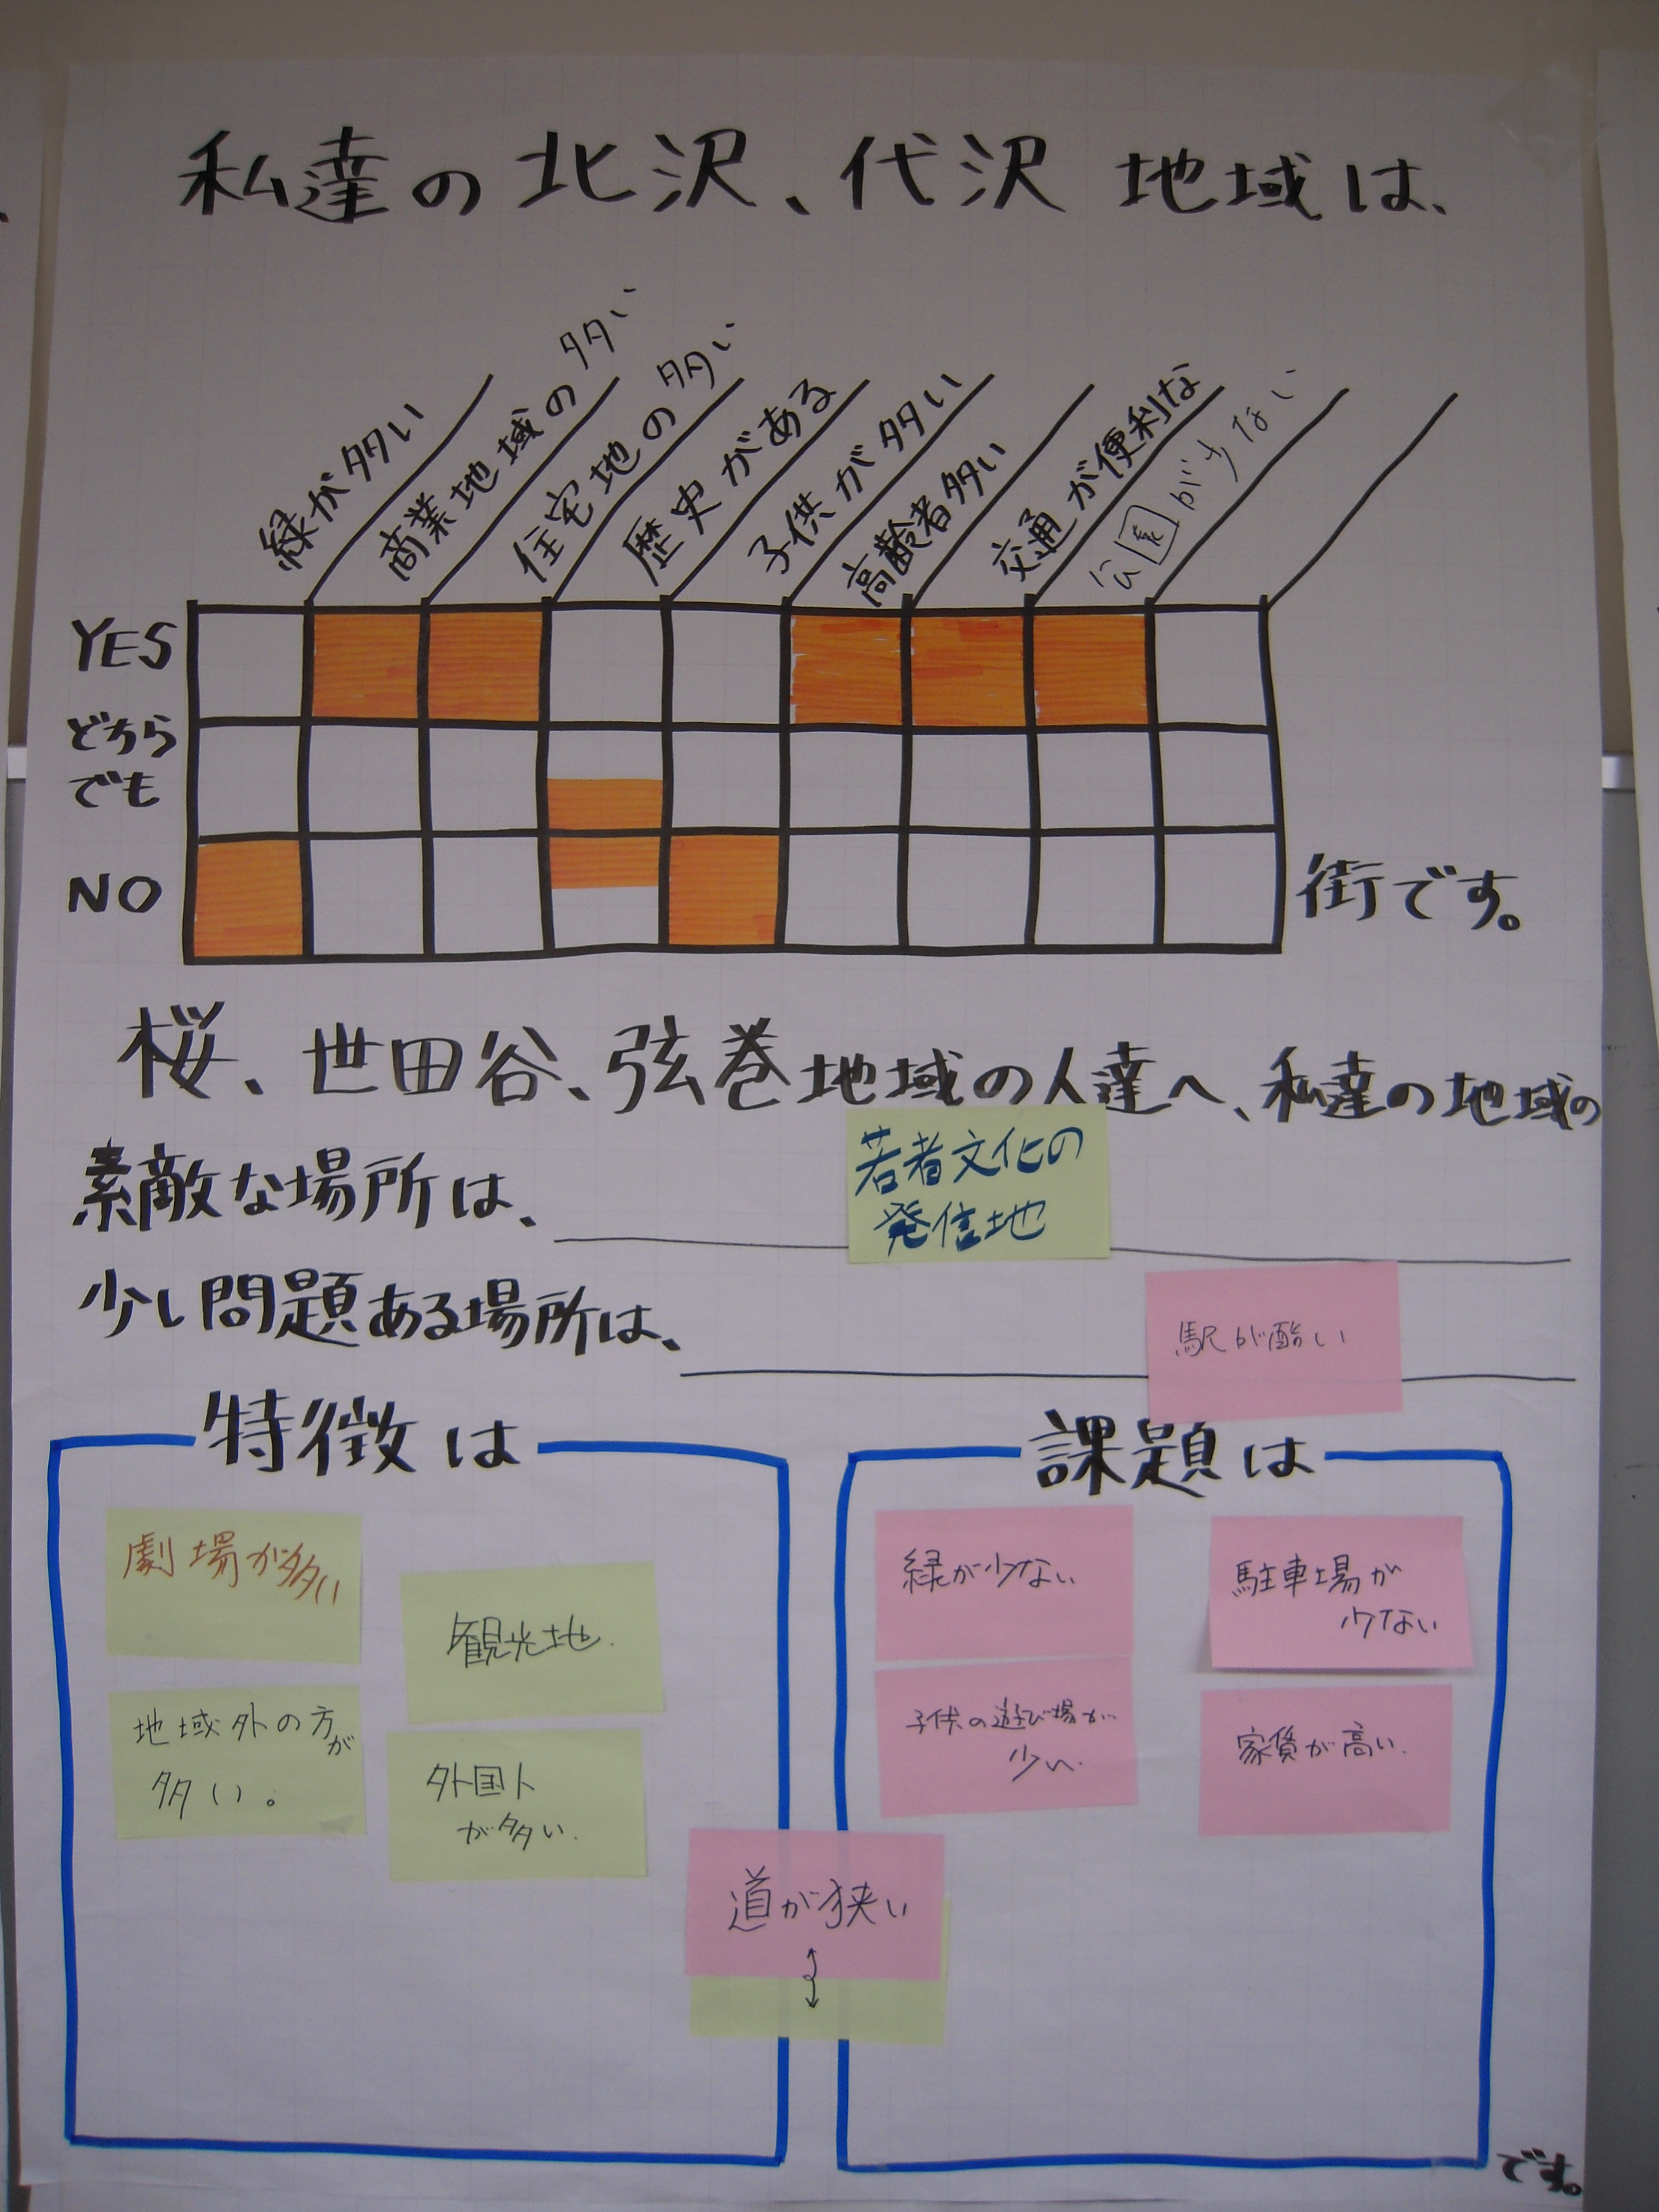 私達の北沢、代沢 地域は、
緑が多い
商業地域の多い
住宅地の多い
歴史がある
子供が多い
高齢者多い
交通が便利な
公園が少ない
YES
どちら
でも
NO
街です。
桜、世田谷、弦巻地域の人達へ、私達の地域の
素敵な場所は、
若者文化の
発信地
少し問題ある場所は、
駅が酷い
特徴は
劇場が多い
観光地.
地域外の方が
多い。
外国人
が多い.
課題は
緑が少ない
駐車場が
少ない
子供の遊び場が
少い.
家賃が高い.
道が狭い
です。